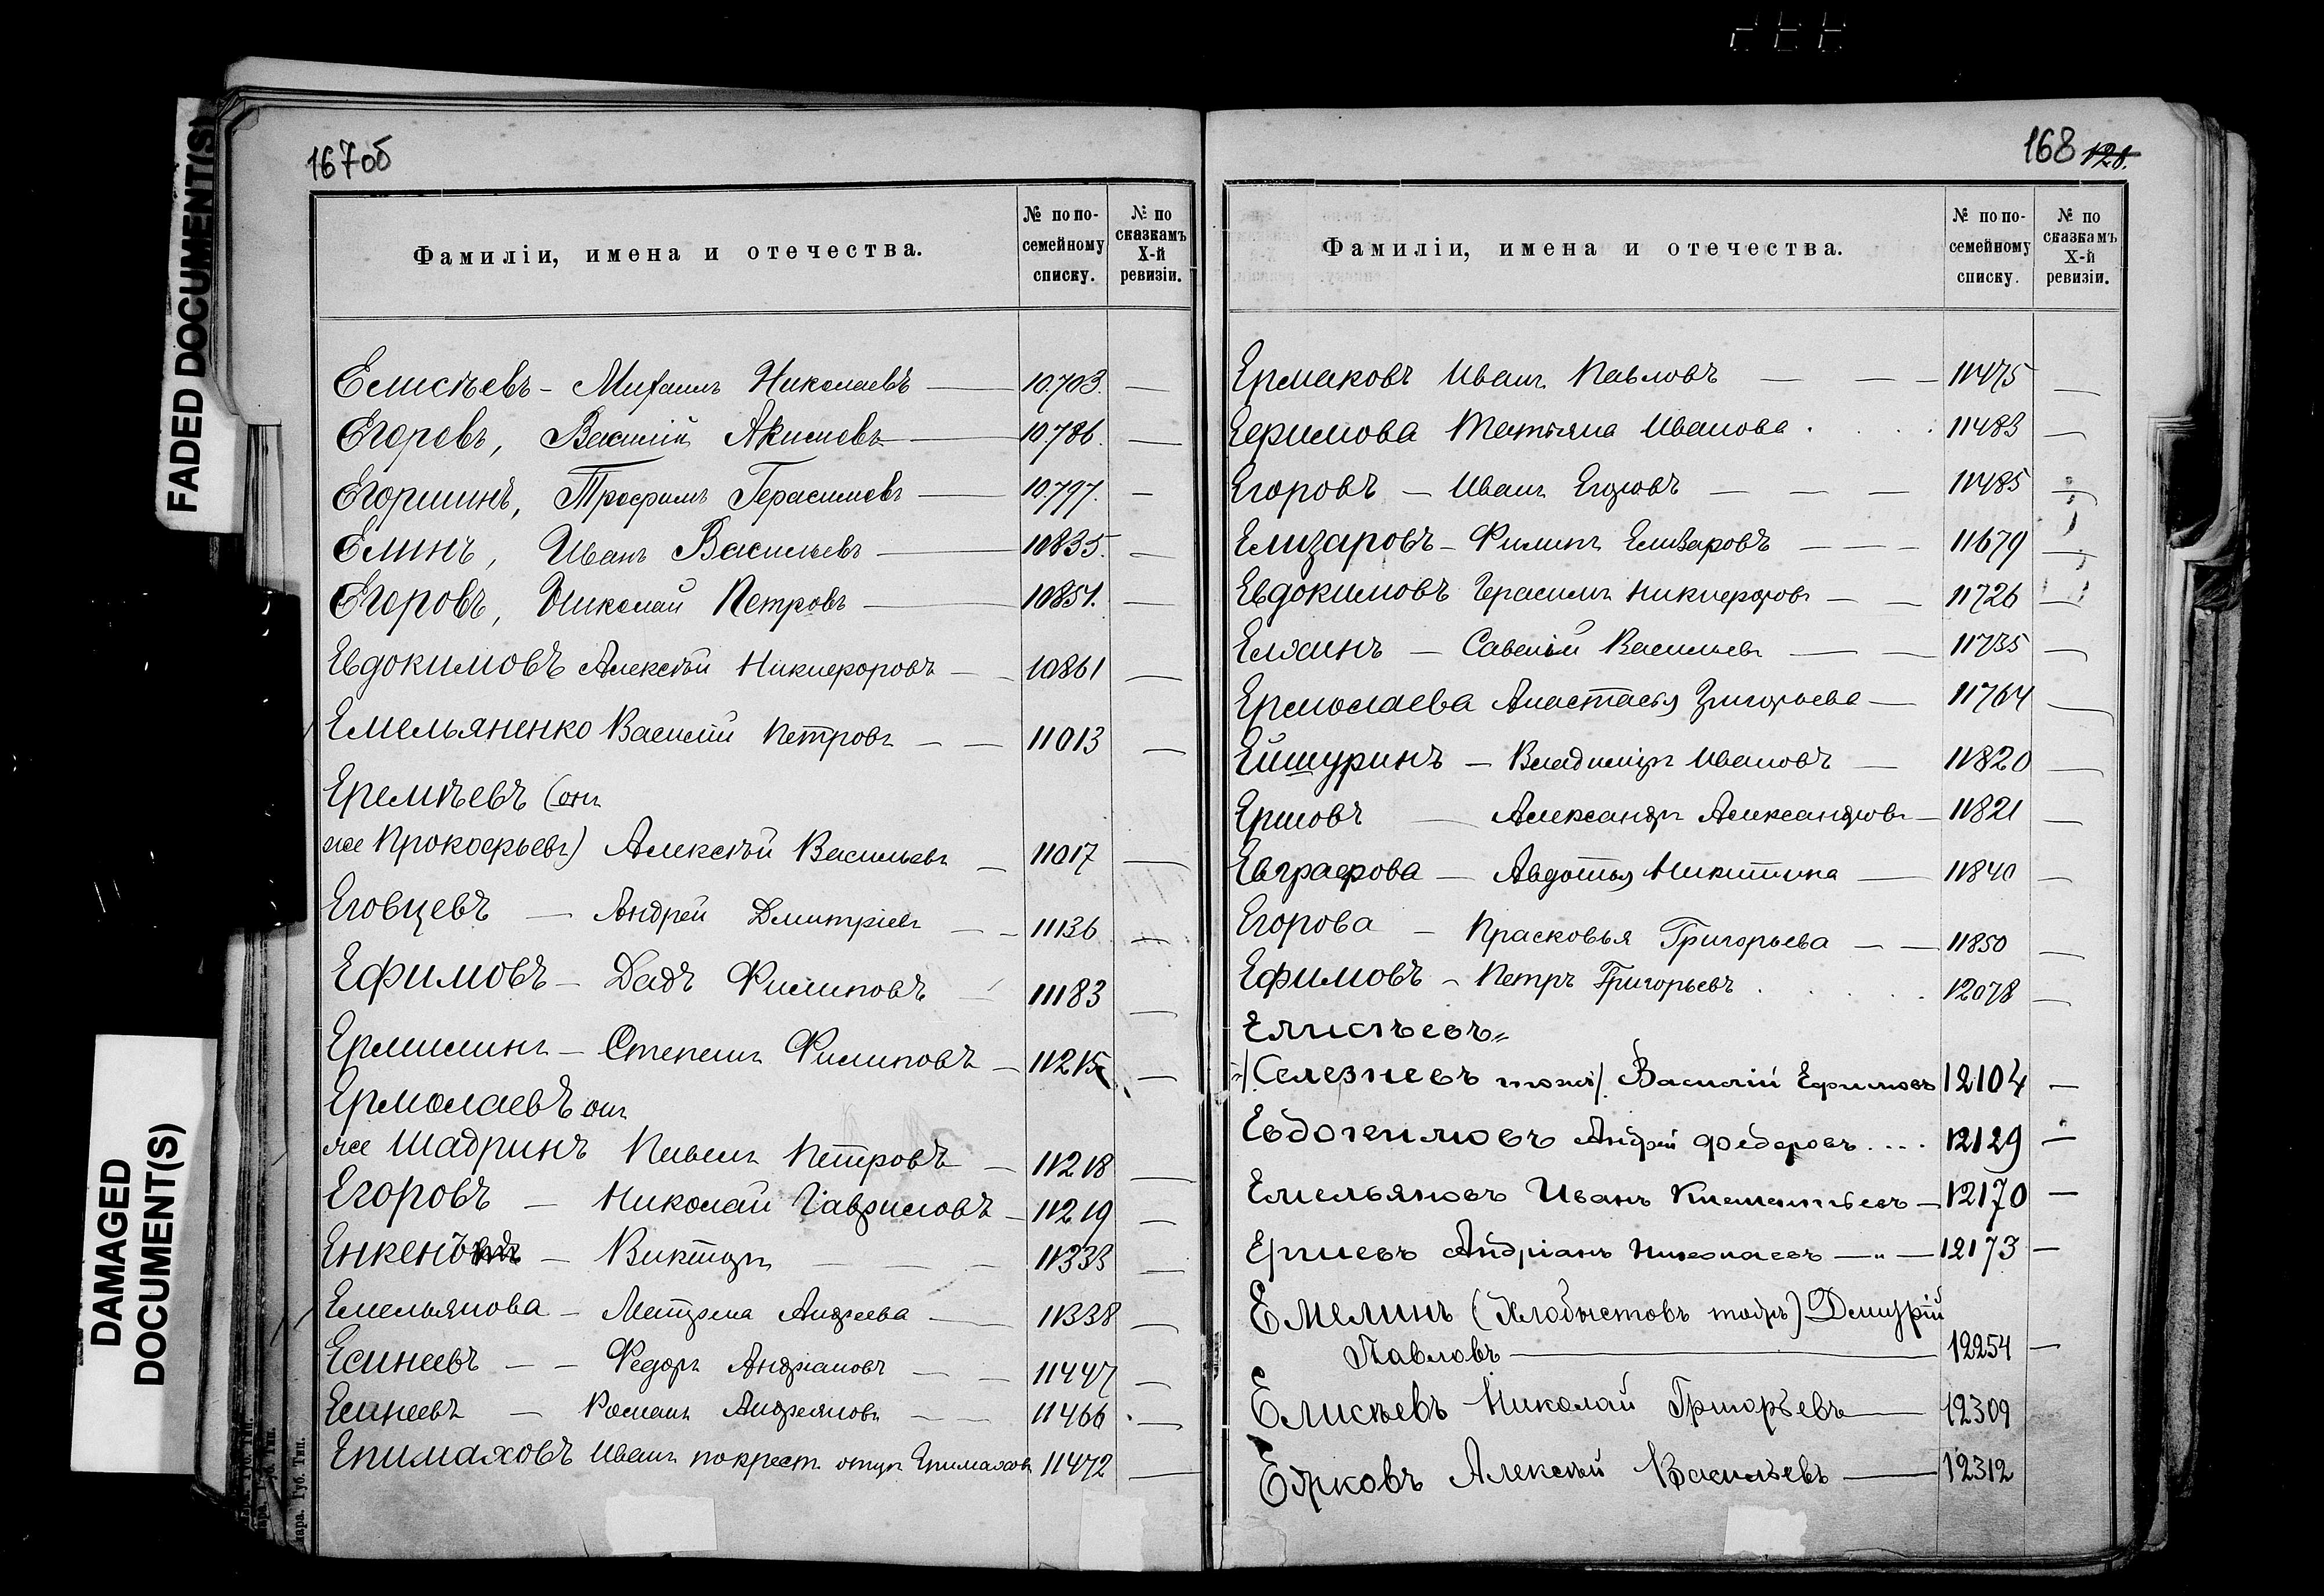 FADED DOCUMENT(S)
DAMAGED
DOCUMENT(S)
167об
Фамиліи, имена и отечества.
№ по по-
семейному
списку.
№ по
сказкамъ
X-й
ревизіи.
Елисѣевъ - Михаилъ Николаевъ — 10.703. —
Егоровъ, Василій Акимовъ — 10.786. —
Егоршинъ, Трофимъ Герасимовъ — 10.797. —
Елинъ, Иванъ Васильевъ — 10835. —
Егоровъ, Николай Петровъ — 10851. —
Евдокимовъ Алексѣй Никифоровъ — 10861 —
Емельяненко Василій Петровъ — 11013 —
Еремѣевъ (онъ
же Прокофьевъ) Алексѣй Васильевъ — 11017 —
Еговцевъ — Андрей Дмитріевъ — 11136 —
Ефимовъ — Дадъ Филиповъ — 11183 —
Ермилинъ — Степанъ Филиповъ — 11215 —
Ермолаевъ онъ
же Шадринъ Павелъ Петровъ — 11218 —
Егоровъ — Николай Гавриловъ — 11219 —
Енкенъ — Викторъ — 11333 —
Емельянова — Матрена Андреева — 11338 —
Есинеевъ — Федоръ Андріановъ — 11447 —
Есинеевъ — Романъ Андреяновъ — 11466 —
Епимаховъ Иванъ по крест. отцу Епимаховъ 11472 —
168 128.
Фамиліи, имена и отечества.
№ по по-
семейному
списку.
№ по
сказкамъ
X-й
ревизіи.
Ермаковъ Иванъ Павловъ — 11475 —
Ефимова Татьяна Иванова . . . 11483 —
Егоровъ — Иванъ Егоровъ — 11485 —
Елизаровъ — Филипъ Елизаровъ — 11679 —
Евдокимовъ Герасимъ Никифоровъ — 11726 —
Елхинъ — Савелій Васильевъ — 11735 —
Ермолаева Анастасья Григорьева — 11764 —
Ейшуринъ — Владиміръ Ивановъ — 11820 —
Ершовъ — Александръ Александровъ — 11821 —
Евграфова — Авдотья Никитина — 11840 —
Егорова — Прасковья Григорьева — 11850 —
Ефимовъ — Петръ Григорьевъ . . . 12078 —
Елисѣевъ
/Селезневъ тожъ/. Василій Ефимовъ 12104 —
Евдокимовъ Андрей Федоровъ . . . 12129 —
Емельяновъ Иванъ Климентьевъ — 12170 —
Ершевъ Андріанъ Николаевъ — " — 12173 —
Емелинъ (Хлобыстовъ тожъ) Дмитрій
Павловъ — 12254 —
Елисѣевъ Николай Григорьевъ — 12309
Алексѣй Васильевъ — 12312
Губ. Тип.